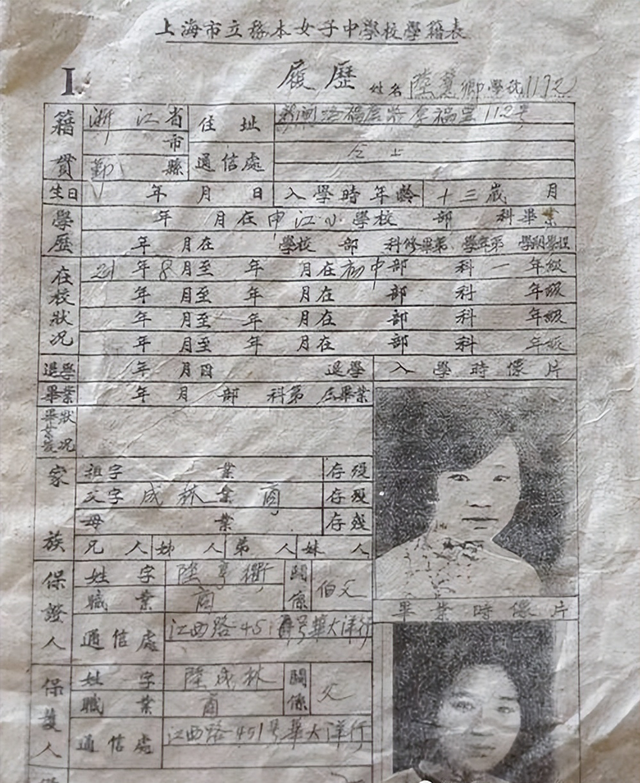 上海市立務本女子中學校學籍表
I 履歷 姓名 陸冀卿 學號 1192
籍貫 浙江省 市 鄞縣 住址 新閘路福康路福里112号
通信處 仝上
生日 年 月 日 入學時年齡 十三歲 月
學歷 年 月在申江小學校 部 科畢業
年 月在 學校 部 科修畢第 學年第 學期學程
在校狀況 21年8月至 年 月在初中部 科一年級
年 月至 年 月在 部 科 年級
年 月至 年 月在 部 科 年級
年 月至 年 月在 部 科 年級
退學 年 月 日 退學 入學時像片
畢業 年 月 部 科第 屆畢業
畢業後狀況
家族 祖字 業 存歿
父字 成林 業 商 存歿
母 業 存歿
兄 人 姊 人 弟 人 妹 人
保證人 姓字 陸亨衢 關係 伯父
職業 商
畢業時像片
通信處 江西路451号華大洋行
保護人 姓字 陸成林 關係 父
職業 商
通信處 江西路451号華大洋行